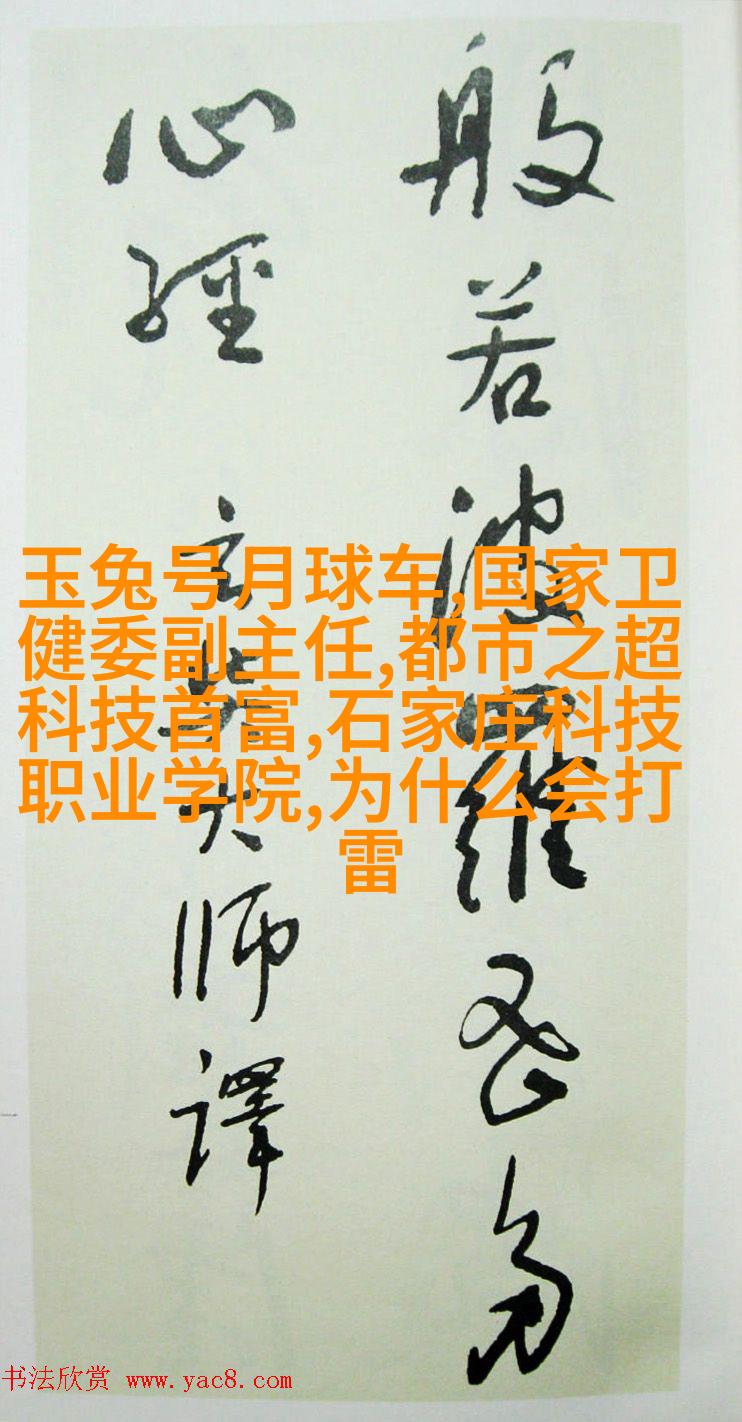 般若波羅蜜多
心經 玄奘大师譯
玉兔号月球车,国家卫
健委副主任,都市之超
科技首富,石家庄科技
职业学院,为什么会打
雷
书法欣赏 www.yac8.com